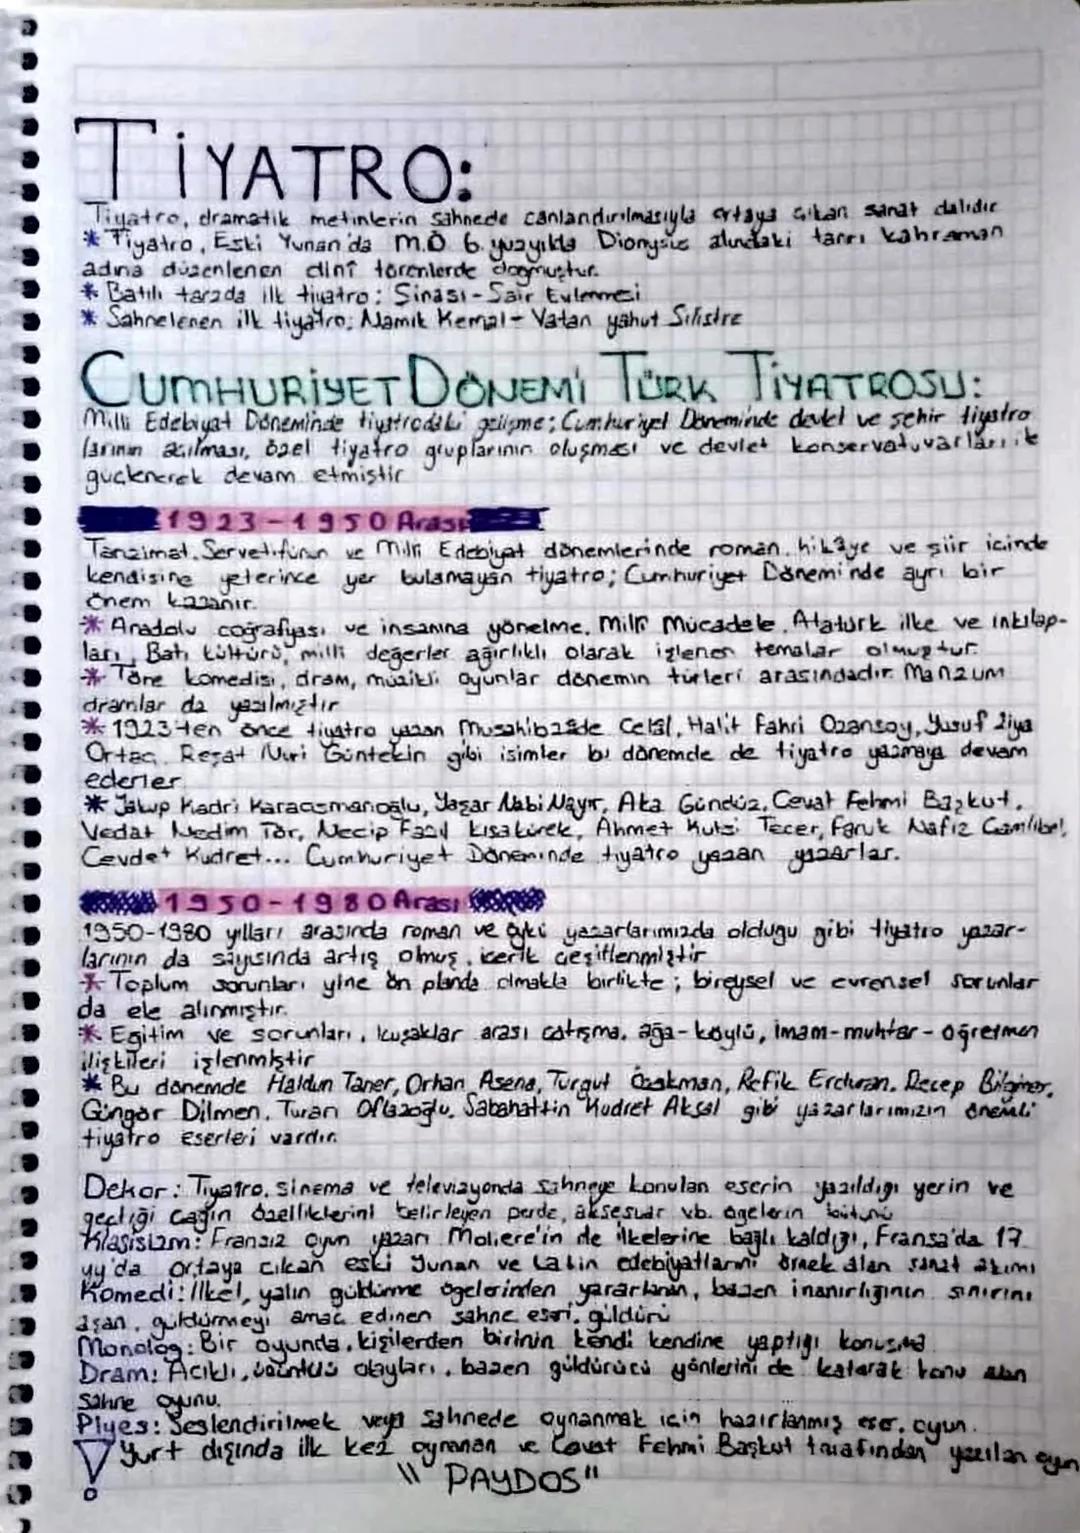 TİYATRO:
Tiyatro, dramatik metinlerin sahnede canlandırılmasıyla ortaya çıkan sanat dalıdır
* Tiyatro, Eski Yunan'da M.Ö 6. yüzyılda Dionysis alındaki tanrı kahraman
adına düzenlenen dinî törenlerde doğmuştur.
* Batılı tarzda ilk tiyatro: Şinasi - Şair Evlenmesi
* Sahnelenen ilk tiyatro: Namık Kemal - Vatan yahut Silistre
CUMHURİYET DÖNEMİ TÜRK TİYATROSU:
Milli Edebiyat Döneminde tiyatrodaki gelişme; Cumhuriyet Döneminde devlet ve şehir tiyatro
larının açılması, özel tiyatro gruplarının oluşması ve devlet konservatuvarları ile
güçlenerek devam etmiştir
1923-1950 Arası
Tanzimat, Servetifünun ve Milli Edebiyat dönemlerinde roman, hikâye ve şiir içinde
kendisine yeterince yer bulamayan tiyatro; Cumhuriyet Döneminde ayrı bir
önem kazanır.
* Anadolu coğrafyası ve insanına yönelme, Milli Mücadele, Atatürk ilke ve inkılap-
ları, Batı kültürü, milli değerler ağırlıklı olarak işlenen temalar olmuştur.
* Töre komedisi, dram, müzikli oyunlar dönemin türleri arasındadır. Manzum
dramlar da yazılmıştır
* 1923'ten önce tiyatro yazan Musahibzâde Celâl, Halit Fahri Ozansoy, Yusuf Ziya
Ortaç, Reşat Nuri Güntekin gibi isimler bu dönemde de tiyatro yazmaya devam
ederler.
* Yakup Kadri Karaosmanoğlu, Yaşar Nabi Nayır, Aka Gündüz, Cevat Fehmi Başkut,
Vedat Nedim Tör, Necip Fazıl Kısakürek, Ahmet Kutsi Tecer, Faruk Nafiz Çamlıbel,
Cevdet Kudret... Cumhuriyet Döneminde tiyatro yazan yazarlar.
1950-1980 Arası
1950-1980 yılları arasında roman ve öykü yazarlarımızda olduğu gibi tiyatro yazar-
larının da sayısında artış olmuş, içerik çeşitlenmiştir
* Toplum sorunları yine ön planda olmakla birlikte; bireysel ve evrensel sorunlar
da ele alınmıştır.
* Eğitim ve sorunları, kuşaklar arası çatışma, ağa-köylü, imam-muhtar-öğretmen
ilişkileri işlenmiştir
* Bu dönemde Haldun Taner, Orhan Asena, Turgut Özakman, Refik Erduran, Recep Bilginer,
Güngör Dilmen, Turan Oflazoğlu, Sabahattin Kudret Aksal gibi yazarlarımızın önemli
tiyatro eserleri vardır.
Dekor: Tiyatro, sinema ve televizyonda sahneye konulan eserin yazıldığı yerin ve
geçtiği çağın özelliklerini belirleyen perde, aksesuar vb. ögelerin bütünü
Klasisizm: Fransız oyun yazarı Moliere'in de ilkelerine bağlı kaldığı, Fransa'da 17.
yy'da ortaya çıkan eski Yunan ve Latin edebiyatlarını örnek alan sanat akımı
Komedi: İlkel, yalın güldürme ögelerinden yararlanan, bazen inanırlığının sınırını
aşan, güldürmeyi amaç edinen sahne eseri, güldürü
Monolog: Bir oyunda, kişilerden birinin kendi kendine yaptığı konuşma
Dram: Acıklı, üzüntülü olayları, bazen güldürücü yönlerini de katarak konu alan
sahne oyunu.
Piyes: Seslendirilmek veya sahnede oynanmak için hazırlanmış eser, oyun.
! Yurt dışında ilk kez oynanan ve Cevat Fehmi Başkut tarafından yazılan oyun
"PAYDOS"